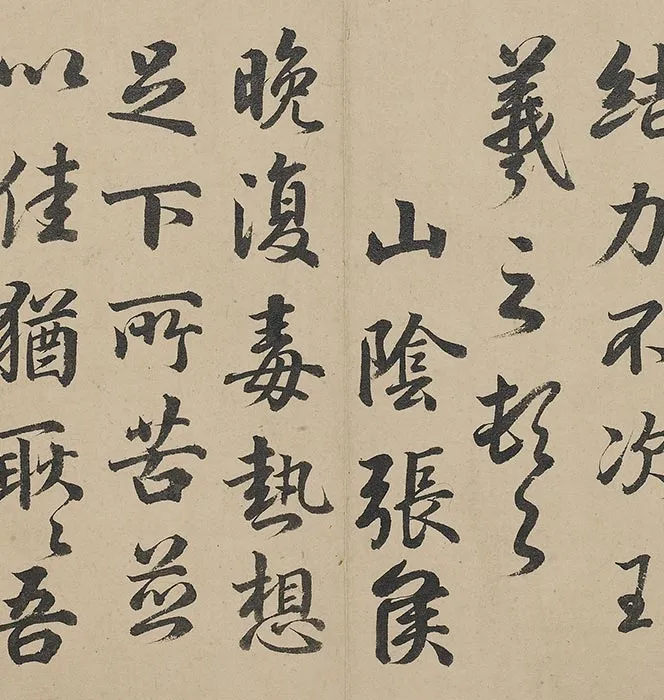 結力不次王
羲之頓首
山陰張侯
晚復毒熱想
足下所苦並
以佳猶耿〻吾